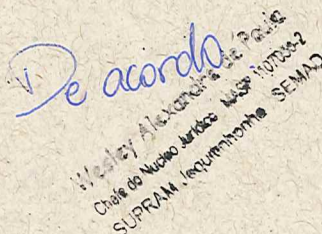 De acordo
Wesley Alexandre de Paula
Chefe do Núcleo Jurídico MASP 1107056-2
SUPRAM Jequitinhonha SEMAD